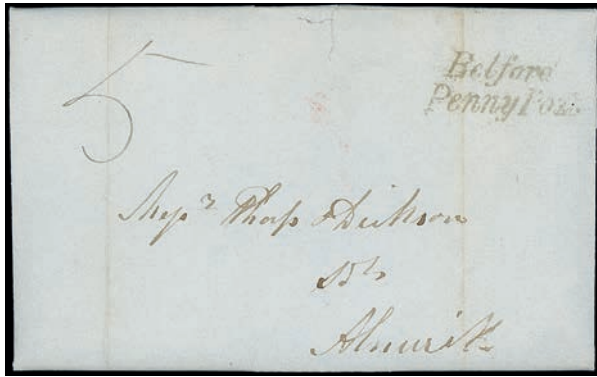 5
Belford
Penny Post
Mess^rs Thorp & Dickson
Alnwick